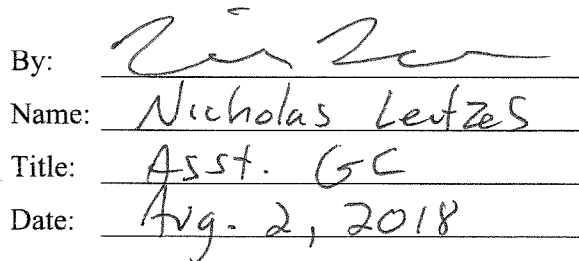 By:
Name: Nicholas Leutzes
Title: Asst. GC
Date: Aug. 2, 2018